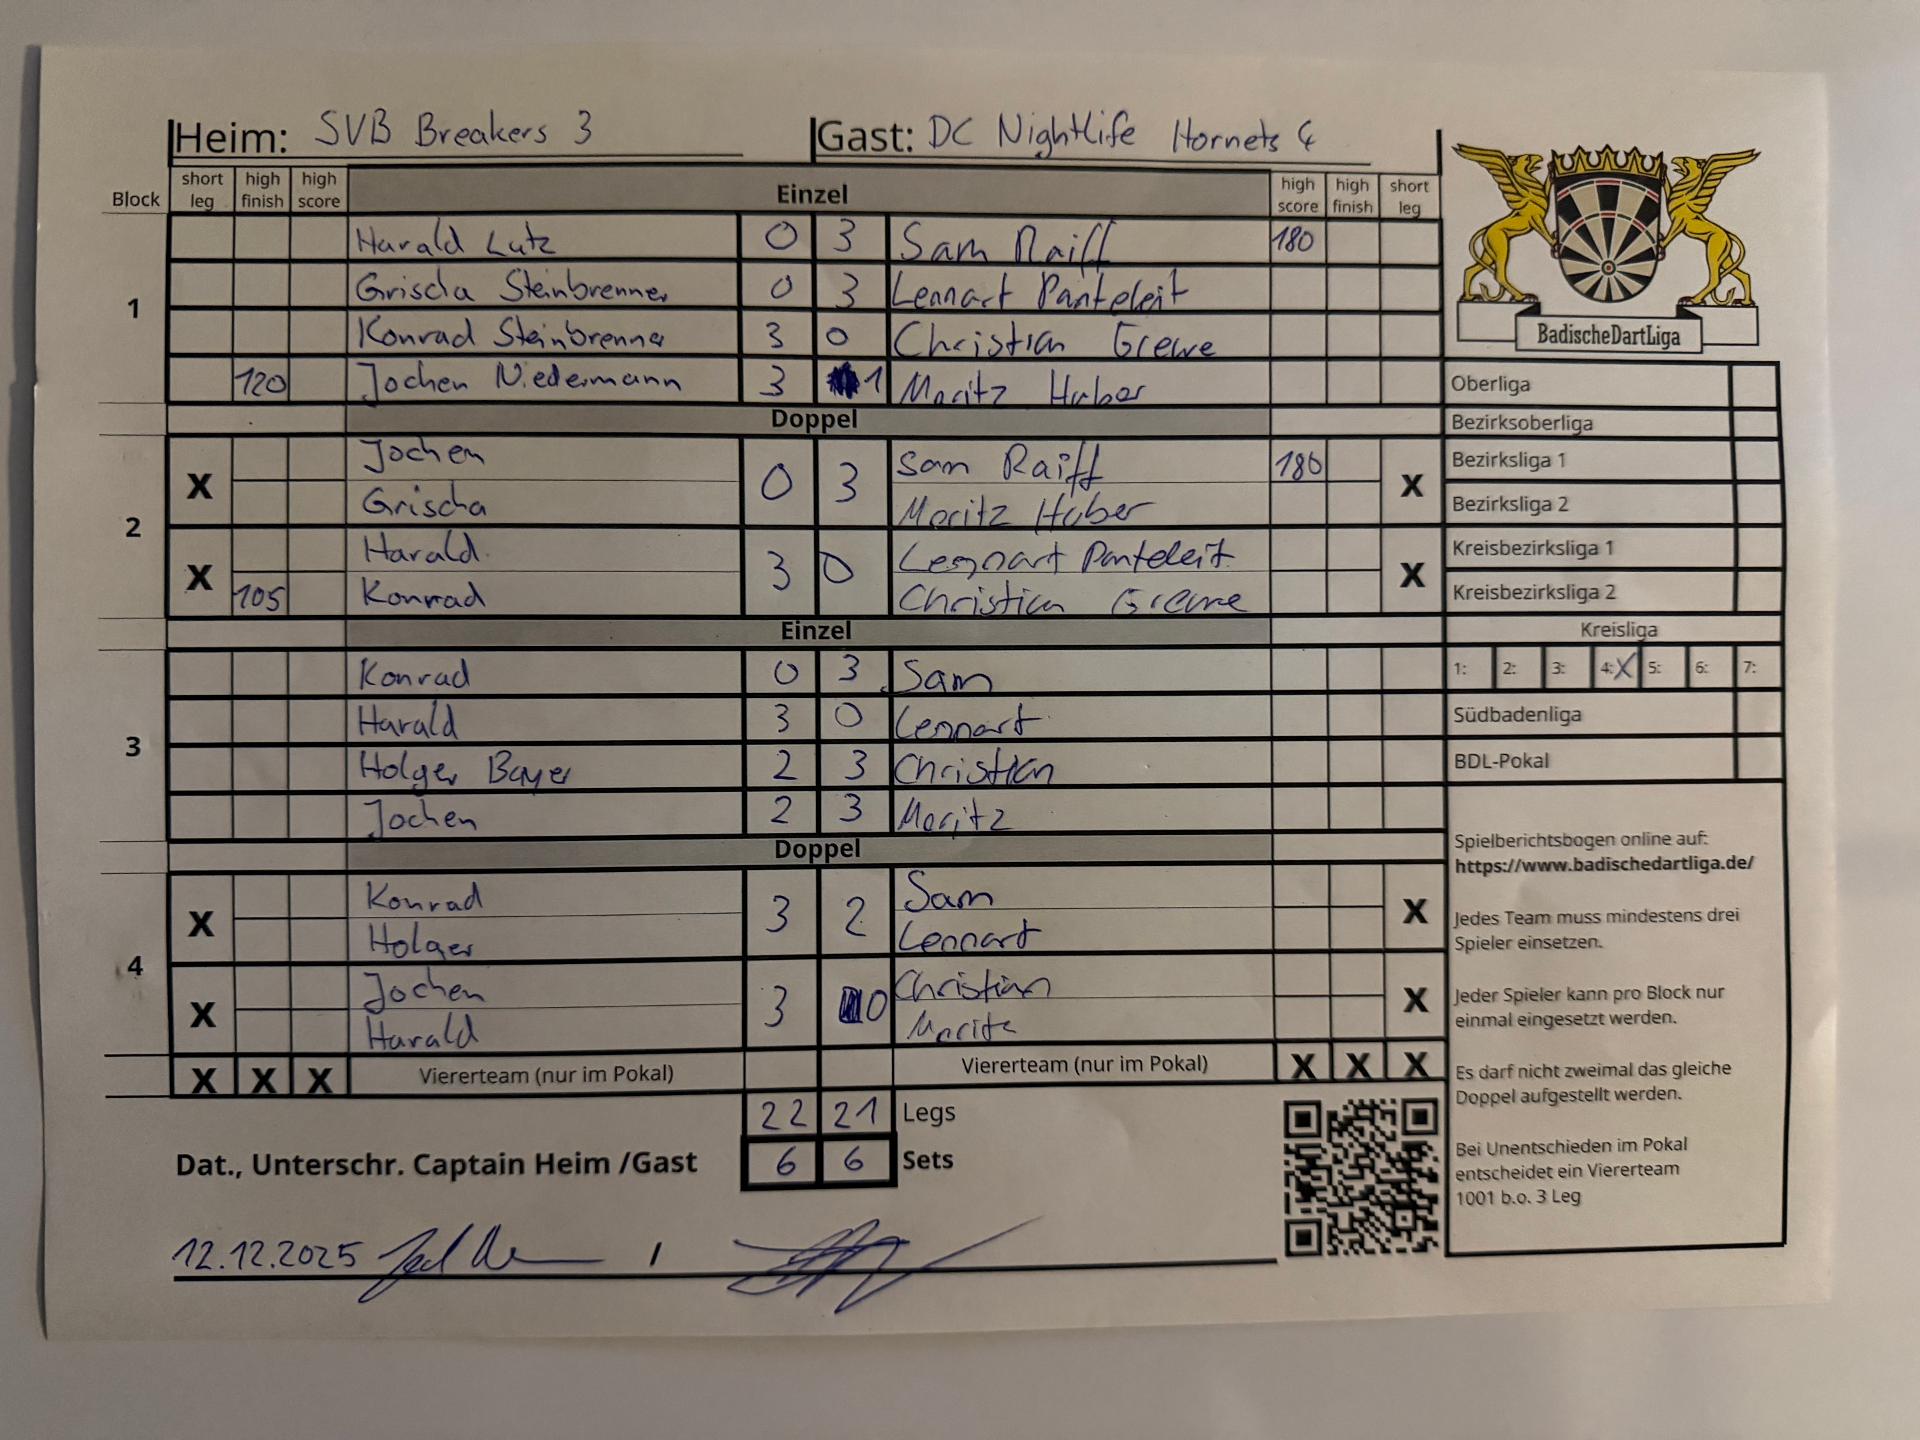 Heim: SVB Breakers 3 Gast: DC Nightlife Hornets 4
Block short leg high finish high score Einzel high score high finish short leg
1
Harald Lutz 0 3 Sam Raiff 180
Grischa Steinbrenner 0 3 Lennart Panteleit
Konrad Steinbrenner 3 0 Christian Grewe
120 Jochen Niedermann 3 1 Moritz Huber
Doppel
2
X Jochen 0 3 Sam Raiff 180 X
Grischa Moritz Huber
X Harald 3 0 Lennart Panteleit X
105 Konrad Christian Grewe
Einzel
3
Konrad 0 3 Sam
Harald 3 0 Lennart
Holger Bayer 2 3 Christian
Jochen 2 3 Moritz
Doppel
4
X Konrad 3 2 Sam X
Holger Lennart
X Jochen 3 0 Christian X
Harald Moritz
X X X Viererteam (nur im Pokal) Viererteam (nur im Pokal) X X X
22 21 Legs
Dat., Unterschr. Captain Heim /Gast 6 6 Sets
12.12.2025 /
BadischeDartLiga
Oberliga
Bezirksoberliga
Bezirksliga 1
Bezirksliga 2
Kreisbezirksliga 1
Kreisbezirksliga 2
Kreisliga
1: 2: 3: 4: X 5: 6: 7:
Südbadenliga
BDL-Pokal
Spielberichtsbogen online auf:
https://www.badischedartliga.de/
Jedes Team muss mindestens drei
Spieler einsetzen.
Jeder Spieler kann pro Block nur
einmal eingesetzt werden.
Es darf nicht zweimal das gleiche
Doppel aufgestellt werden.
Bei Unentschieden im Pokal
entscheidet ein Viererteam
1001 b.o. 3 Leg